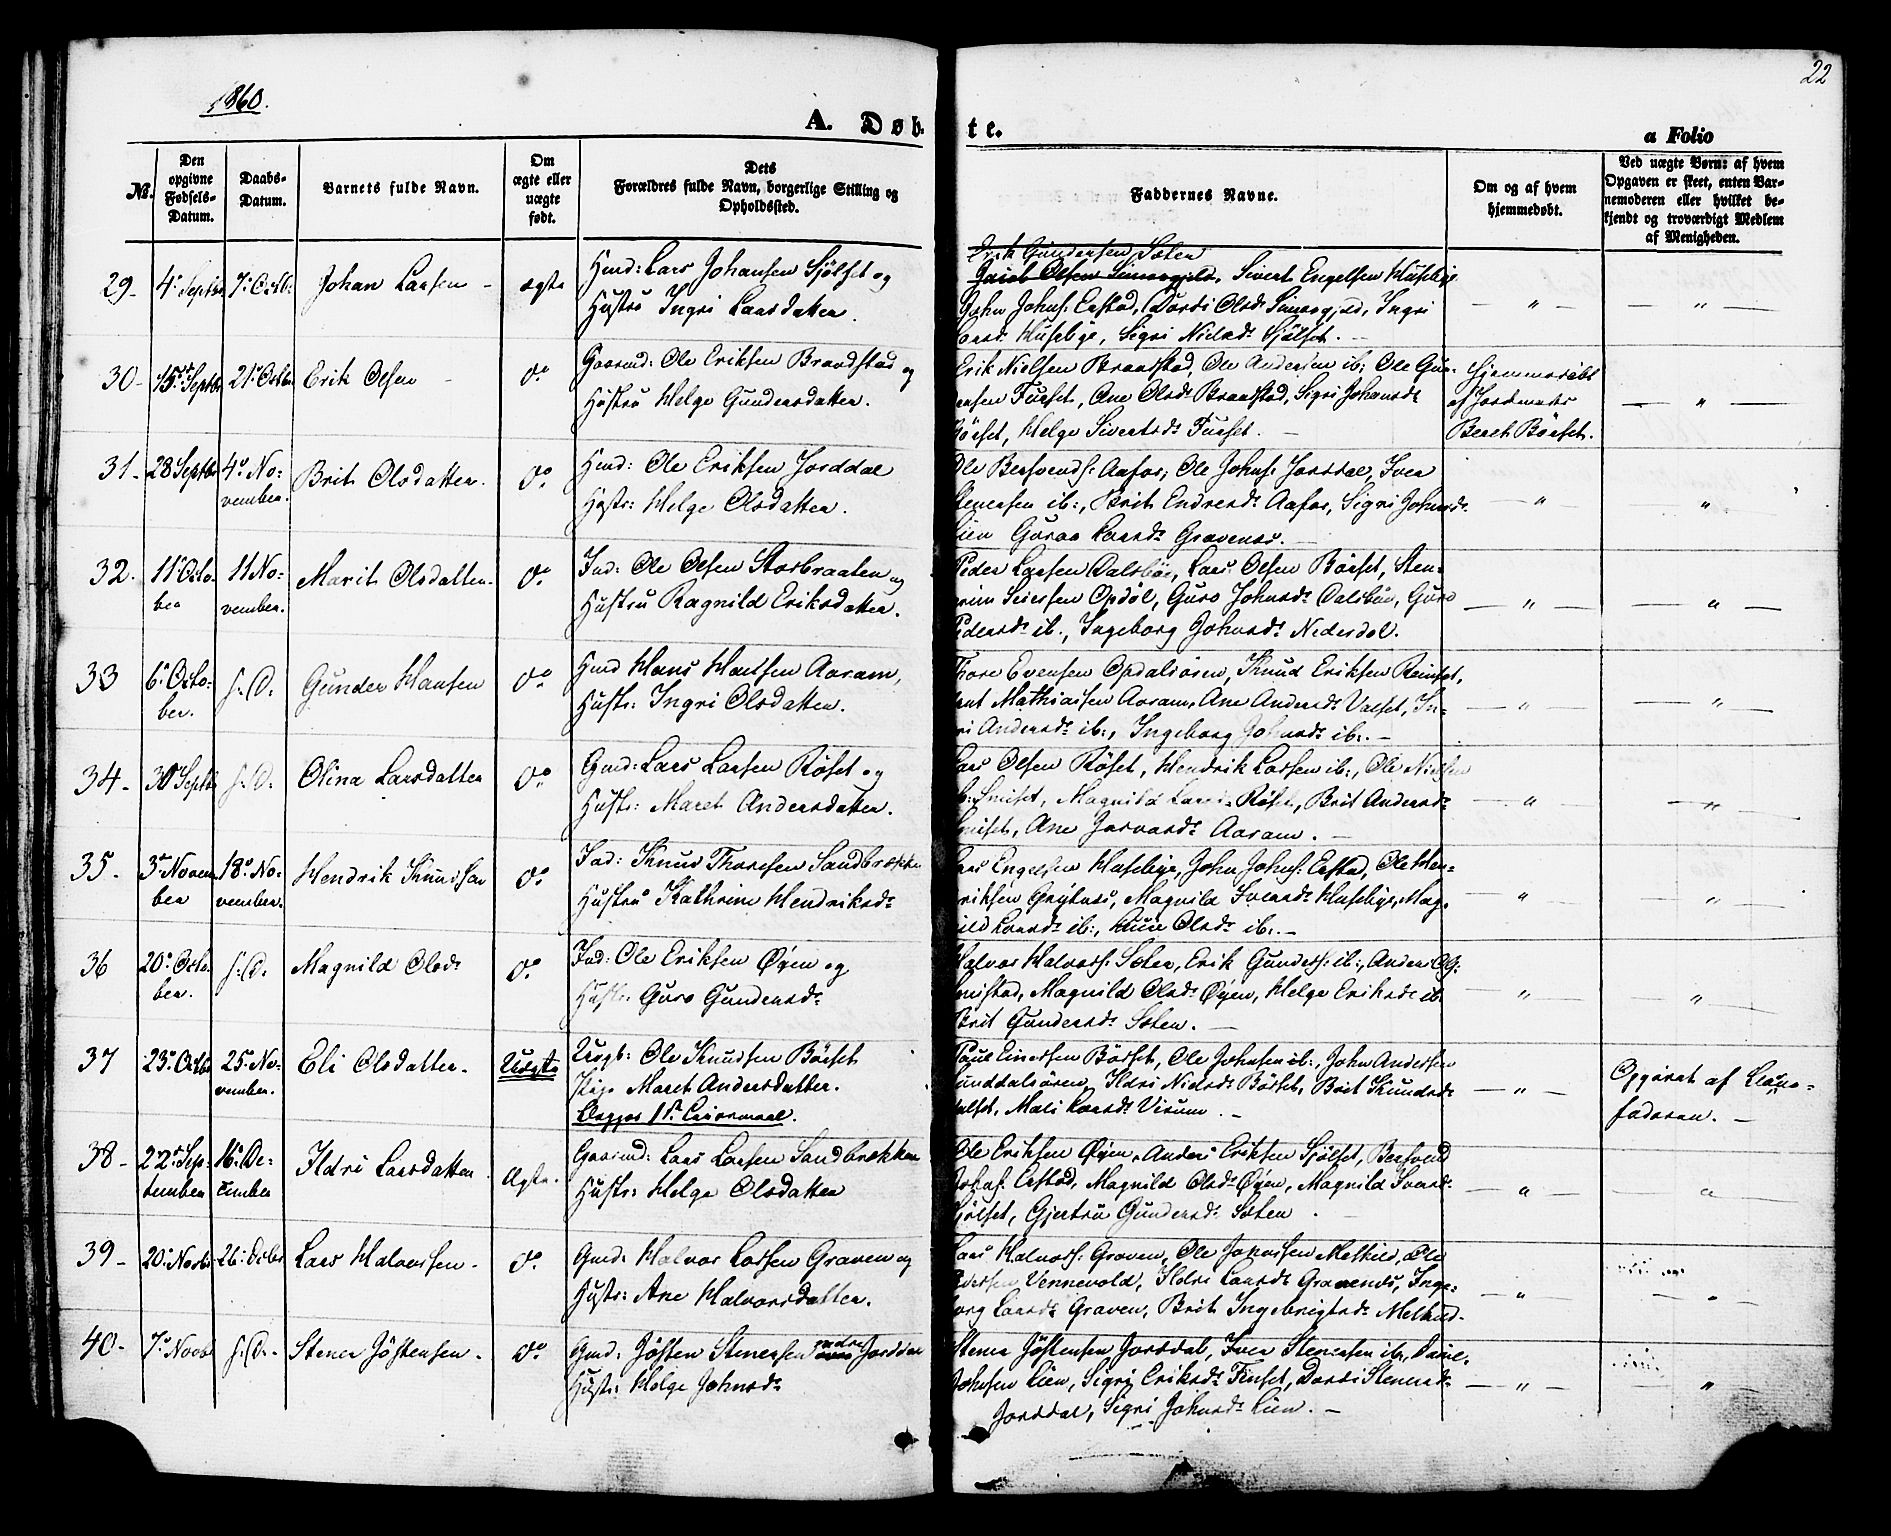 1860.
22
A. Døb
te.
a Folio
No.
Den opgivne Fødsels-Datum.
Daabs-Datum.
Barnets fulde Navn.
Om ægte eller uægte født.
Dets Forældres fulde Navn, borgerlige Stilling og Opholdssted.
Faddernes Navne.
Om og af hvem hjemmedøbt.
Ved uægte Børn: af hvem Opgaven er skeet, enten Barnemoderen eller hvilket bekjendt og troværdigt Medlem af Menigheden.
29 - 4: Septbr 7: Octb: Johan Larsen - ægte
Hmd: Lars Johansen Sjølset og
Hustru Ingri Larsdatter.
Erik Gundersen Sæter
Sivert Engelsen Husebye
John Johns: Erstad, Dordi Olsd:
Husebye, Sigri Nielsd: Sjølset. -
30 - 15: Septbr 21: Octbr Erik Olsen - do
Gaarmd: Ole Eriksen Brandstad og
Hustru Helge Gundersdatter.
Erik Nielsen Brandstad, Ole Andersen ib: Ole Gun-
Furset, Ane Olsdr Brandstad, Sigri Johansdr
Børset, Helge Sivertsdr Furset. -
Hjemmedøbt
af Jordmoder
Beret Børset.
31 - 28 Septbr 4: No-
vember. Brit Olsdatter. do
Hmd: Ole Eriksen Jorddal
Hustr: Helge Olsdatter.
Ole Bersvends: Aafar, Ole Johns: Jorddal, Iver
Stenersen ib:, Brit Endresdr Aafar, Sigri Johnsdr
Lien Guroe Larsdr
32. 11 Octo-
ber 11 No-
vember. Marit Olsdatter. do
Ind: Ole Olsen Storbraaten og
Hustru Ragnild Eriksdatter.
Peder Larsen Dalsbøe, Lars Olsen Børset, Sten-
Opdøl, Guro Johnsdr Dalsbøe, Guro
Pedersdr ib:, Ingeborg Johnsdr Nederdal.
33 6: Octo-
ber. s: D: Gunder Hansen do
Hmd Hans Hansen Aaram,
Hustr: Ingri Olsdatter.
Thore Evensen Opdalsøren, Knud Eriksen
Mathiassen Aaram, Ane Andersdr Valset, In-
gri Andersdr ib:, Ingeborg Johnsdr ib:. -
34 - 30 Septbr s: D: Olina Larsdatter do
Gmd: Lars Larsen Røset og
Hustr: Maret Andersdatter.
Lars Olsen Røset, Hendrik Larsen ib:, Ole Nielsen
Magnild Larsdr Røset, Brit Andersdr
Ane Aaram. -
35 - 3: Novem-
ber 18: No-
vember. Hendrik Knudsen do
Ind: Knud Thoresen Sandbrækken
Hustru Kathrine Hendriksdr
Lars Engelsen Husebye, John Johns: Erstad, Ole Hen-
driksen Magnild Iversdr Husebye, Mag-
nild Larsdr ib:, Olsdr ib:. -
36 20: Octo-
ber. s: D: Magnild Olsdr do
Ind: Ole Eriksen Øyen og
Hustr: Guro Gundersdr
Halvor Halvors: Sæter, Erik Gunders: ib:,
Magnild Olsdr Øyen, Helge Eriksdr ib
Brit Gundersdr Sæter. -
37 23: Octbr 25: No-
vember. Eli Olsdatter. Uægte
Ungk: Ole Knudsen Børset
Pige Maret Andersdatter.
Begges 1ste Leiermaal.
Paul Børset, Ole Johnsen ib:, John Andersen
Sunddalsøren, Ildri Nielsdr Børset, Brit Knudsdr
Mali Larsdr Virum. -
Opgivet af
faderen. -
38 - 22: Sep-
tember 16: De-
cember Ildri Larsdatter. ægte.
Gaarmd: Lars Larsen Sandbrækken
Hustr: Helge Olsdatter
Ole Eriksen Øyen, Anders Eriksen Sjølset, Bersvend
Johns: Erstad, Magnild Olsdr Øyen, Magnild Iversdr
Sjølset, Gjertru Gundersdr Sæter.
39 - 20: Novbr 26: Decbr Lars Halvorsen - do
Gmd: Halvor Larsen Graven og
Hustr: Ane Halvorsdatter.
Lars Halvors: Graven, Ole Johnsen Melkild, Ole
Pedersen Vennevold, Ildri Larsdr Inge-
borg Larsdr Graven, Brit Ingebrigtsdr Melkild.
40 - 7: Novb s: D: Stener Jøstensen. do
Gmd: Jøsten Stenersen nedre Jorddal
Hustr: Helge Johnsdr
Stener Jøstensen Jorddal, Iver Stenersen ib:,
Johnsen Lien, Sigri Eriksdr Furset, Dordi Stenersdr
Jorddal, Sigri Johnsdr Lien. -